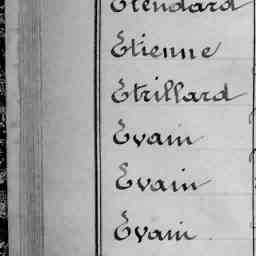 Etendard
Etienne
Etrillard
Evain
Evain
Evain